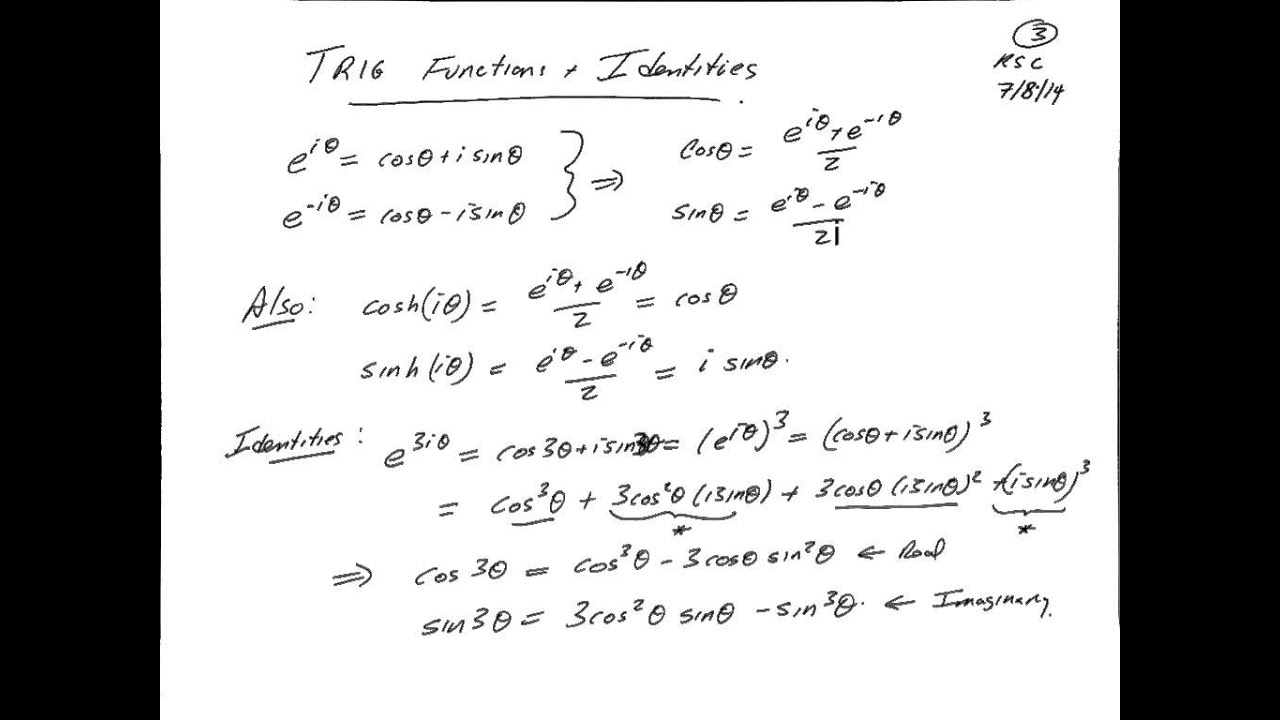 3
TRIG Functions + Identities
RSC
7/8/14
e^{iθ} = cosθ + i sinθ
e^{-iθ} = cosθ - i sinθ
} ⇒
cosθ = (e^{iθ} + e^{-iθ})/2
sinθ = (e^{iθ} - e^{-iθ})/2i
Also: cosh(iθ) = (e^{iθ} + e^{-iθ})/2 = cosθ
sinh(iθ) = (e^{iθ} - e^{-iθ})/2 = i sinθ.
Identities: e^{3iθ} = cos3θ + i sin3θ = (e^{iθ})^3 = (cosθ + i sinθ)^3
= cos^3θ + 3cos^2θ (i sinθ) + 3cosθ (i sinθ)^2 + (i sinθ)^3
* *
⇒ cos 3θ = cos^3θ - 3cosθ sin^2θ ← Real
sin3θ = 3cos^2θ sinθ - sin^3θ. ← Imaginary.